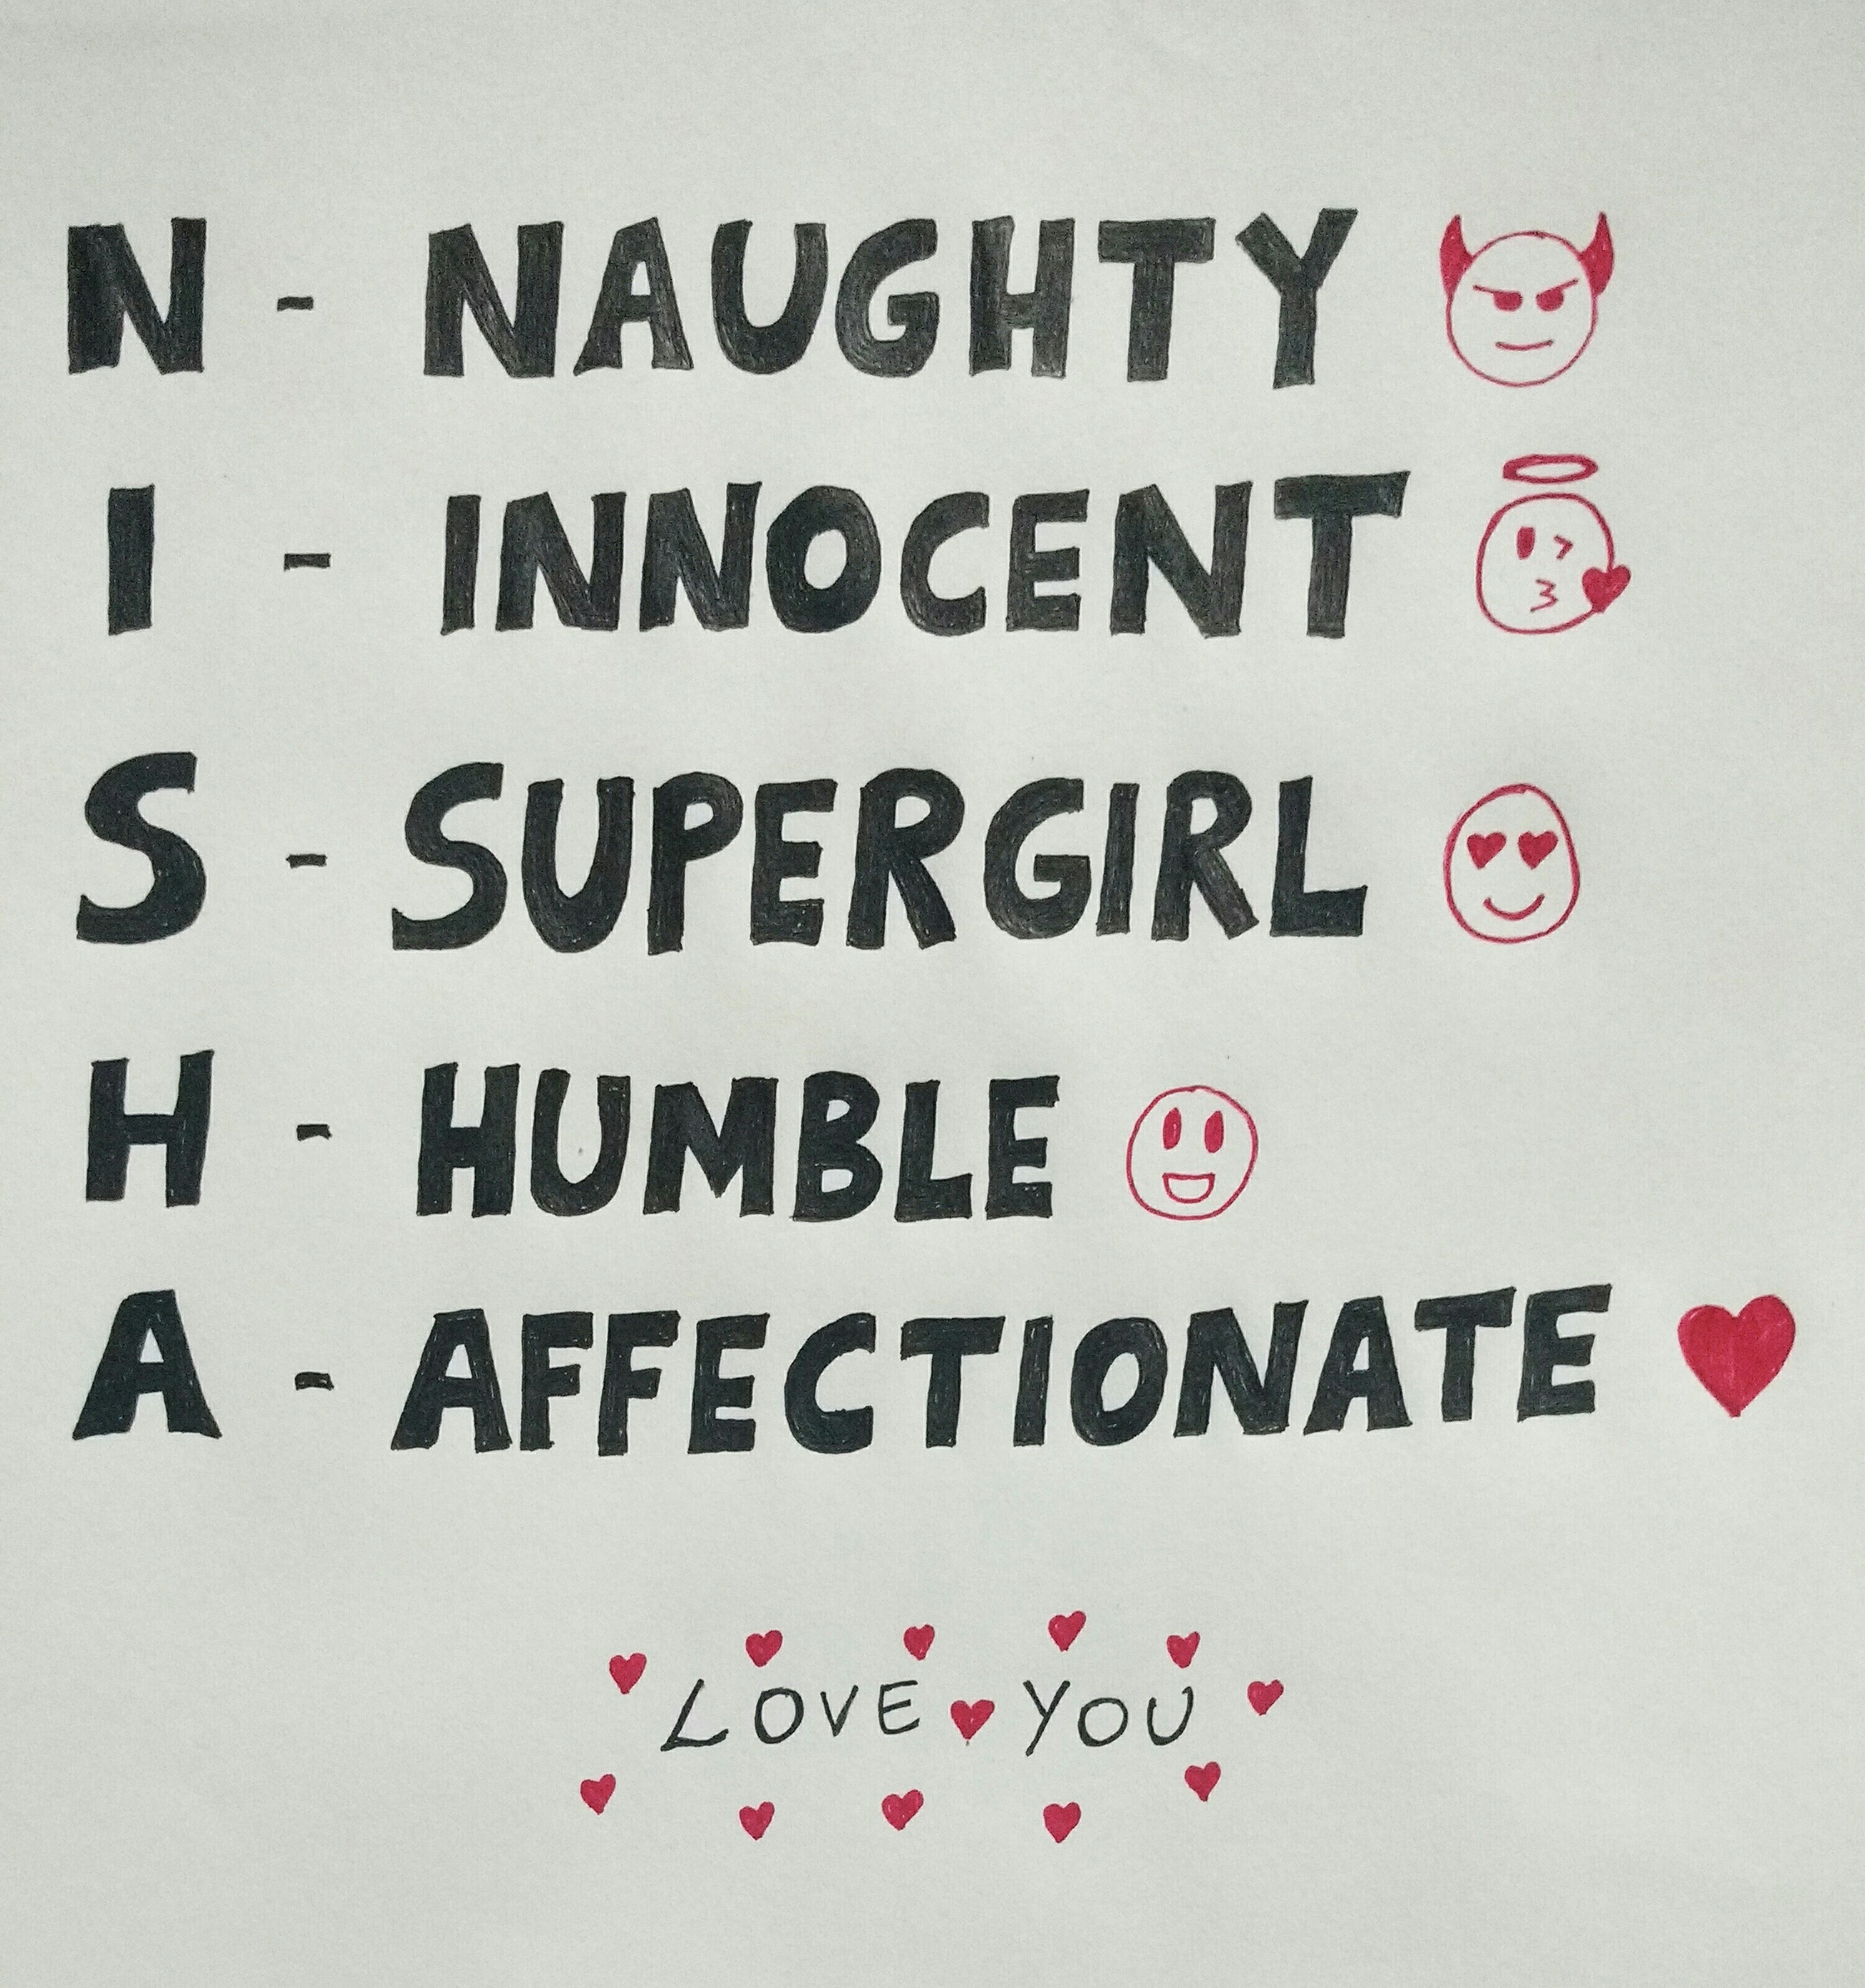 N - NAUGHTY
I - INNOCENT
S - SUPERGIRL
H - HUMBLE
A - AFFECTIONATE
LOVE YOU